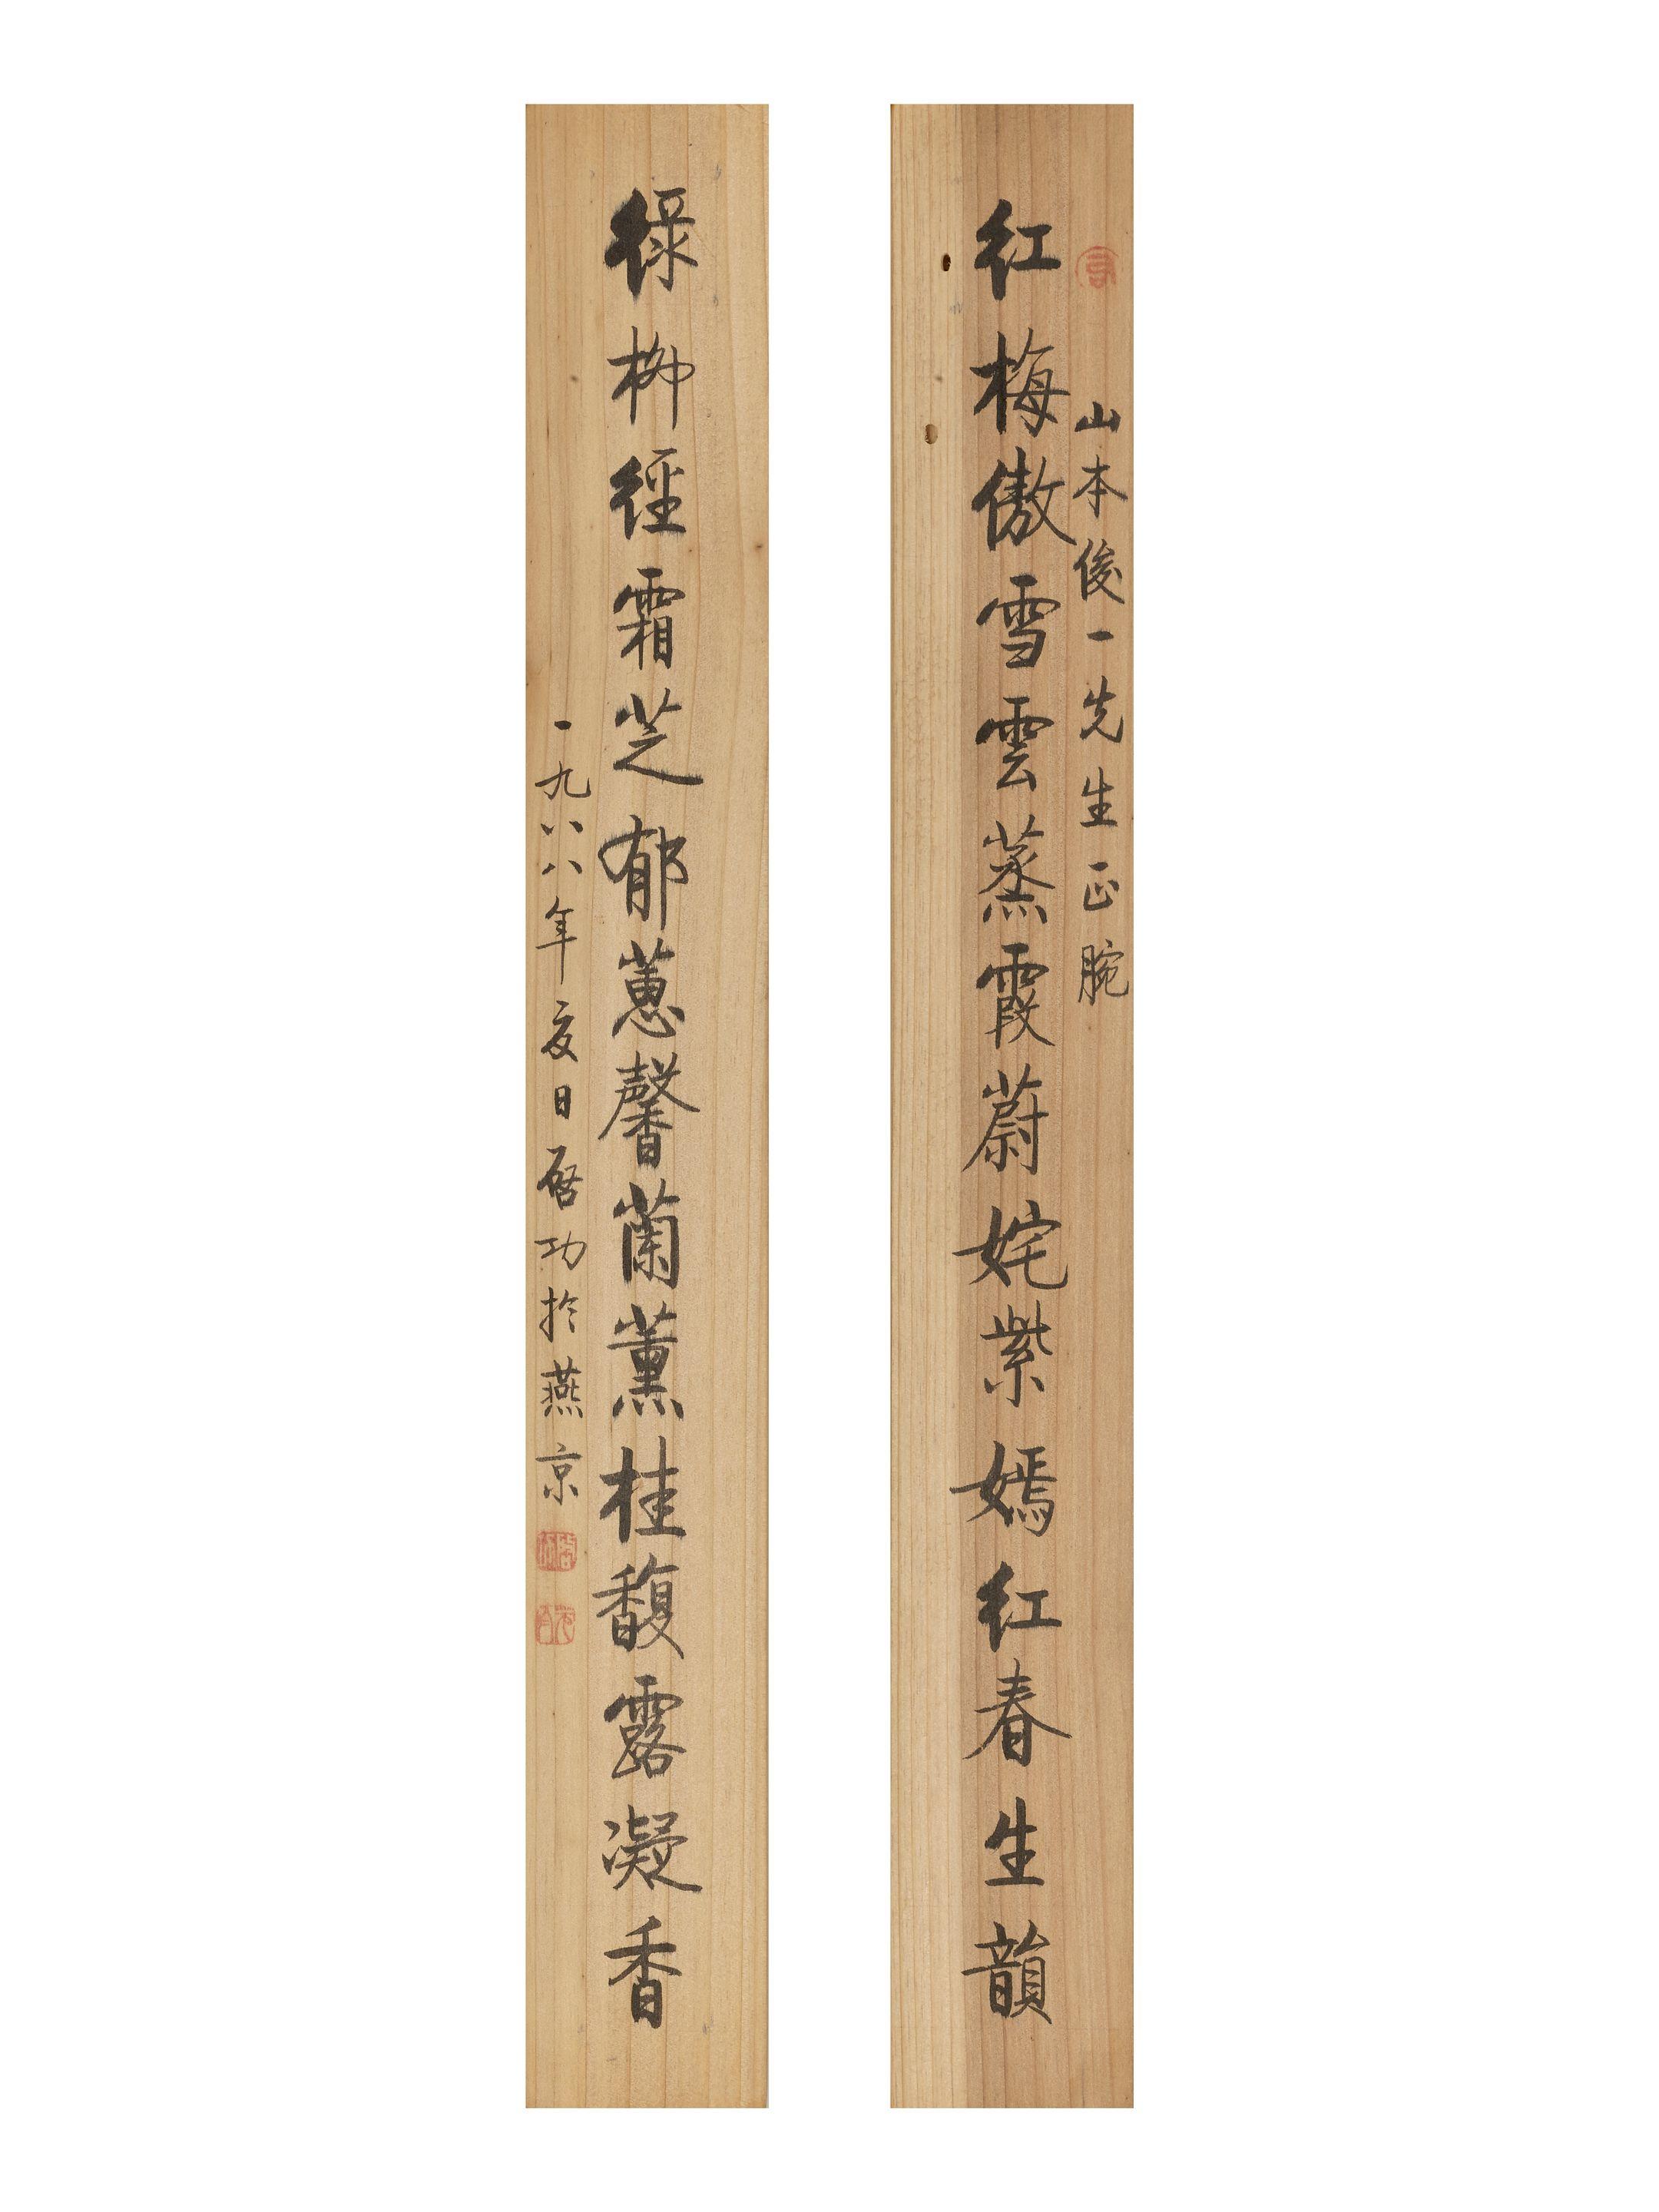 山本俊一先生正腕
紅梅傲雪雲蒸霞蔚姹紫嫣紅春生韻
綠柳經霜芝郁蕙馨蘭薰桂馥露凝香
一九八八年夏日啓功於燕京